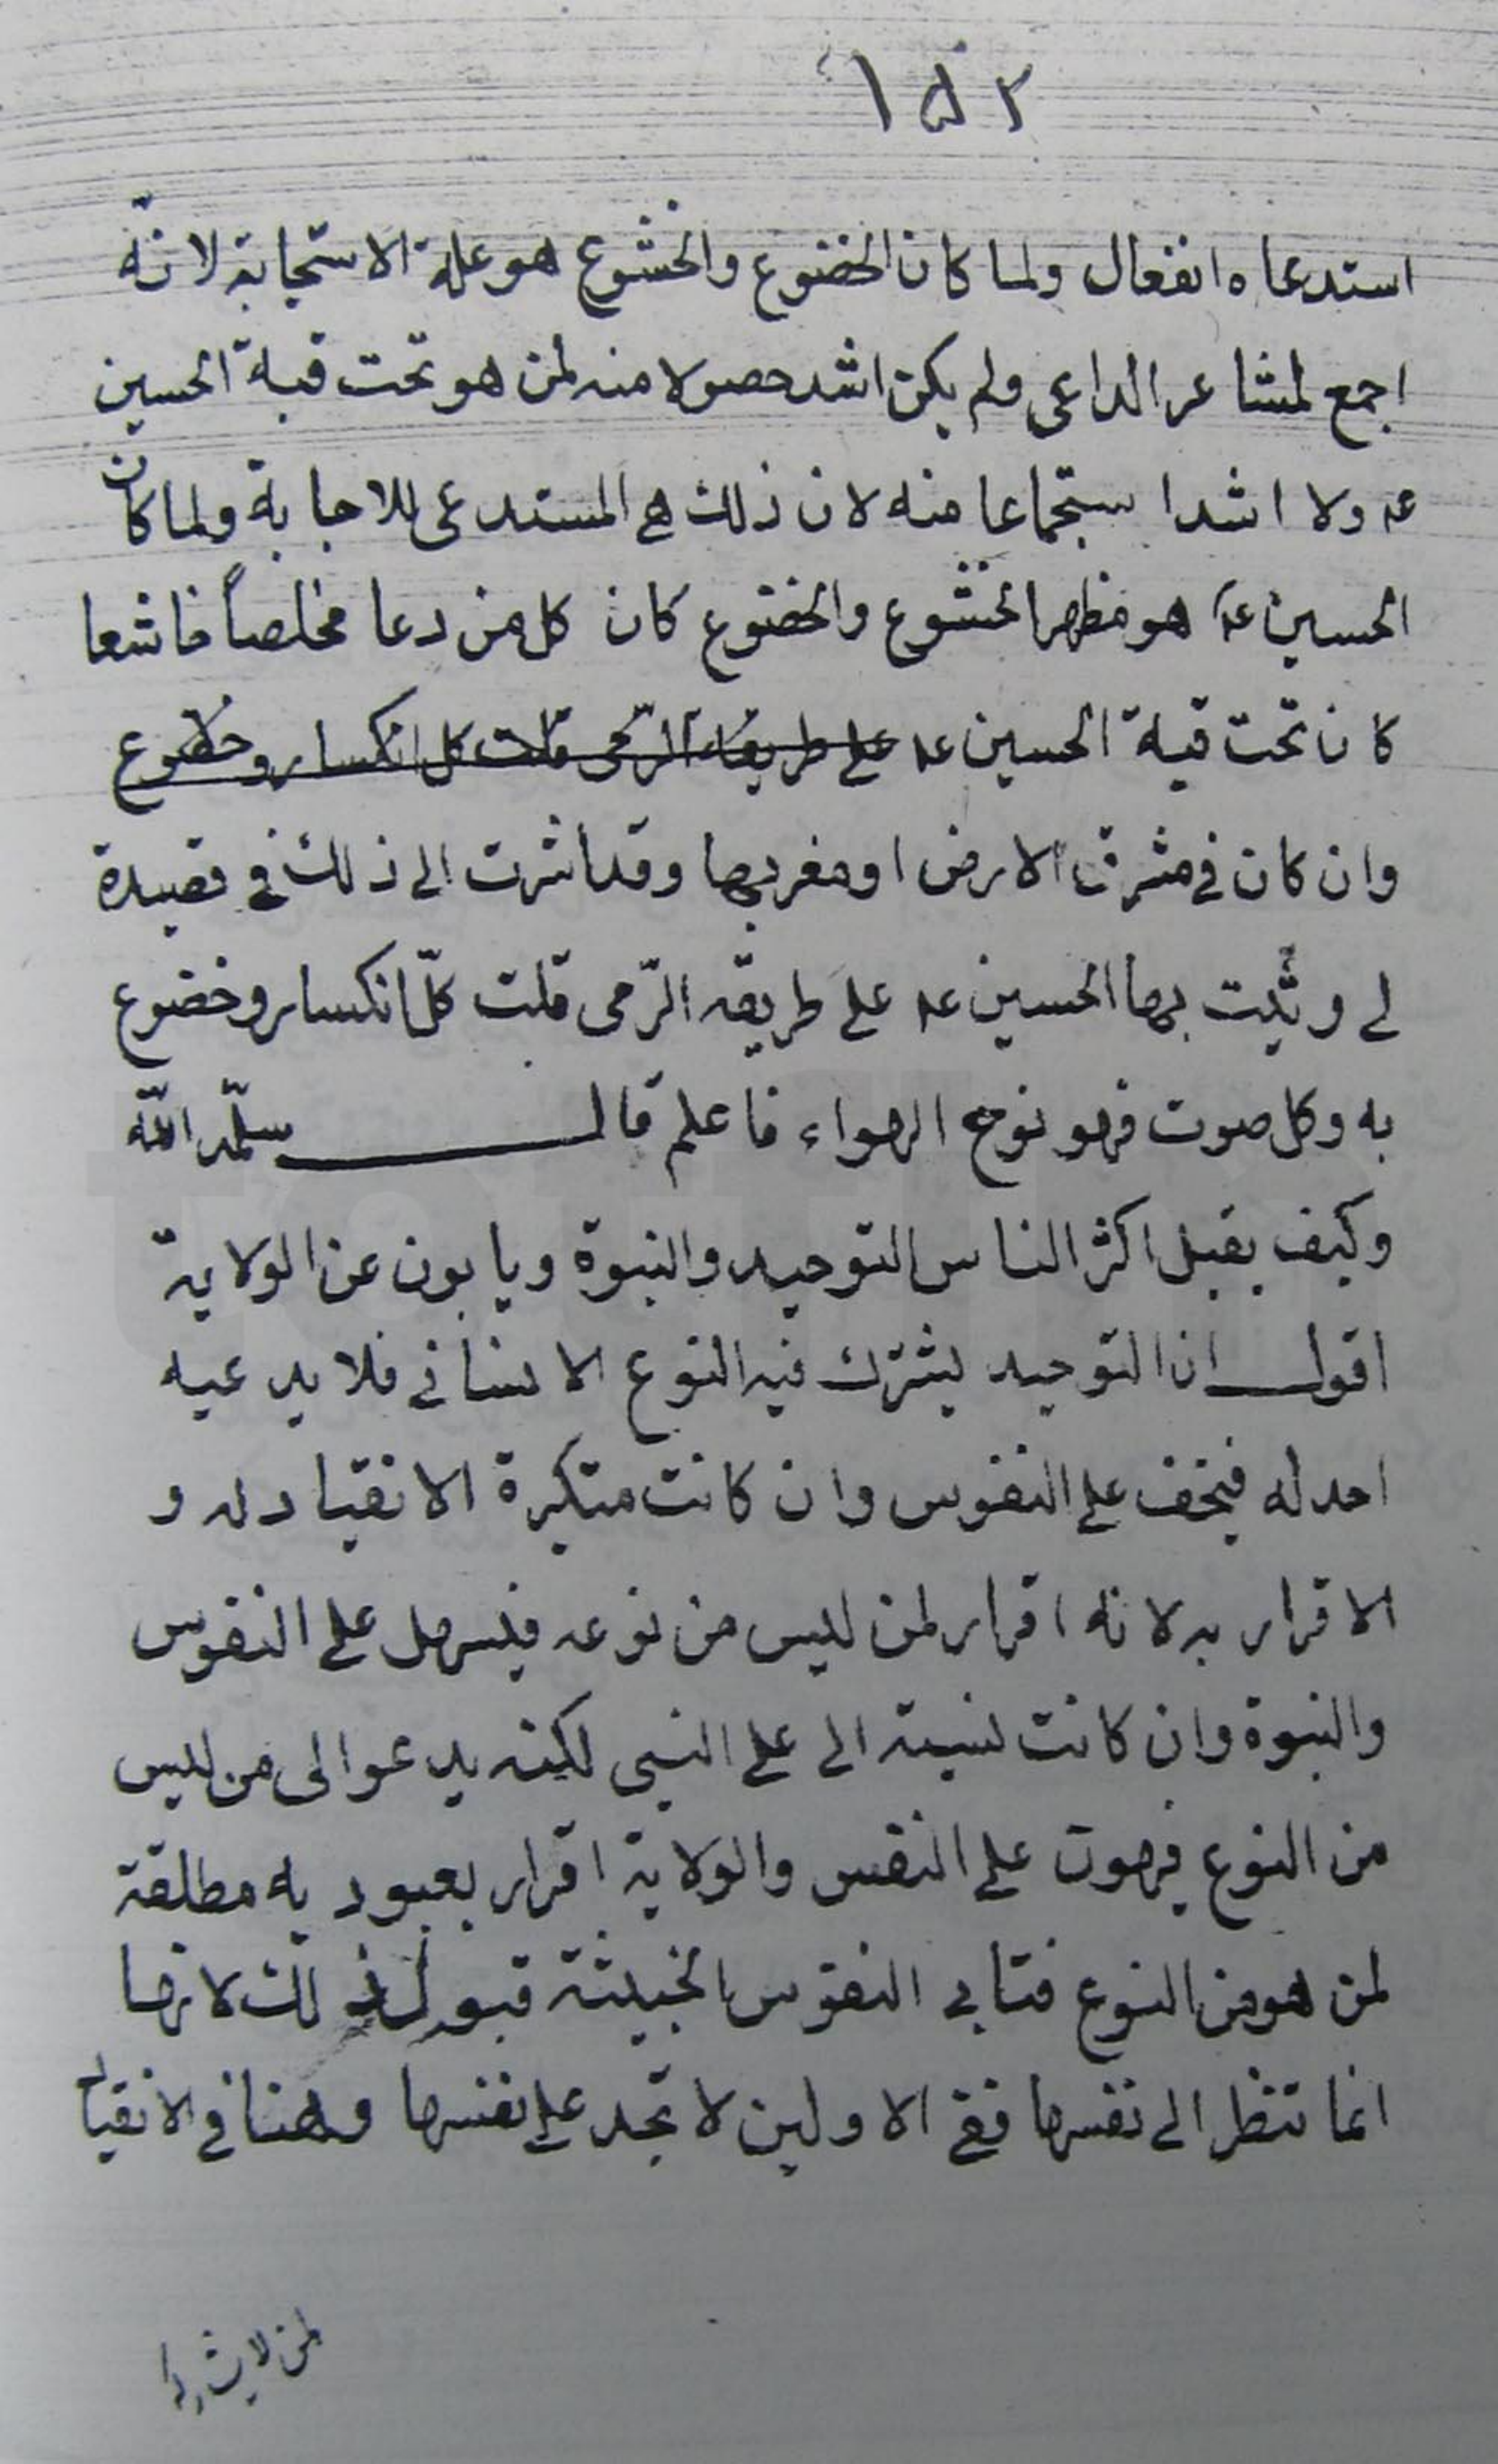 ١٥٢
استدعاه انفعال ولما كان الخضوع والخشوع هو علة الاستجابة لانّه
اجمع لمشاعر الداعى ولم يكن اشد حصولا منه لمن هو تحت قبة الحسين
عه ولا اشد استجماعا منه لان ذلك هى المستدعى للاجابة ولما كان
الحسين عه هو مظهر الخشوع والخضوع كان كل من دعا مخلصاً خاشعا
كان تحت قبة الحسين عه على طريقة الرّمى قلت كل انكسار وخضوع
وان كان فى مشرق الارض او مغربها وقد اشرت الى ذلك فى قصيدة
لى رثيت بها الحسين عه على طريقه الرّمى قلت كلّ انكسار وخضوع
به وكل صوت فهو نوح الهواء فاعلم قال سلّمه اللّه
وكيف يقبل اكثر الناس التوحيد والنبوة ويابون عن الولاية
اقول ان التوحيد يشترك فيه النوع الانسانى فلا يدعيه
احد له فيخف على النفوس وان كانت متكبرة الانقياد له و
الاقرار به لانه اقرار لمن ليس من نوعه فيسهل على النفوس
والنبوة وان كانت نسبته الى على النبى لكنه يدعوا الى من ليس
من النوع فيهون على النفس والولاية اقرار بعبودية مطلقة
لمن هو من النوع فتابى النفوس الخبيثة قبول ذلك لانها
انما تنظر الى نفسها ففى الاولين لا تجد على نفسها وهنا فى الانقياد